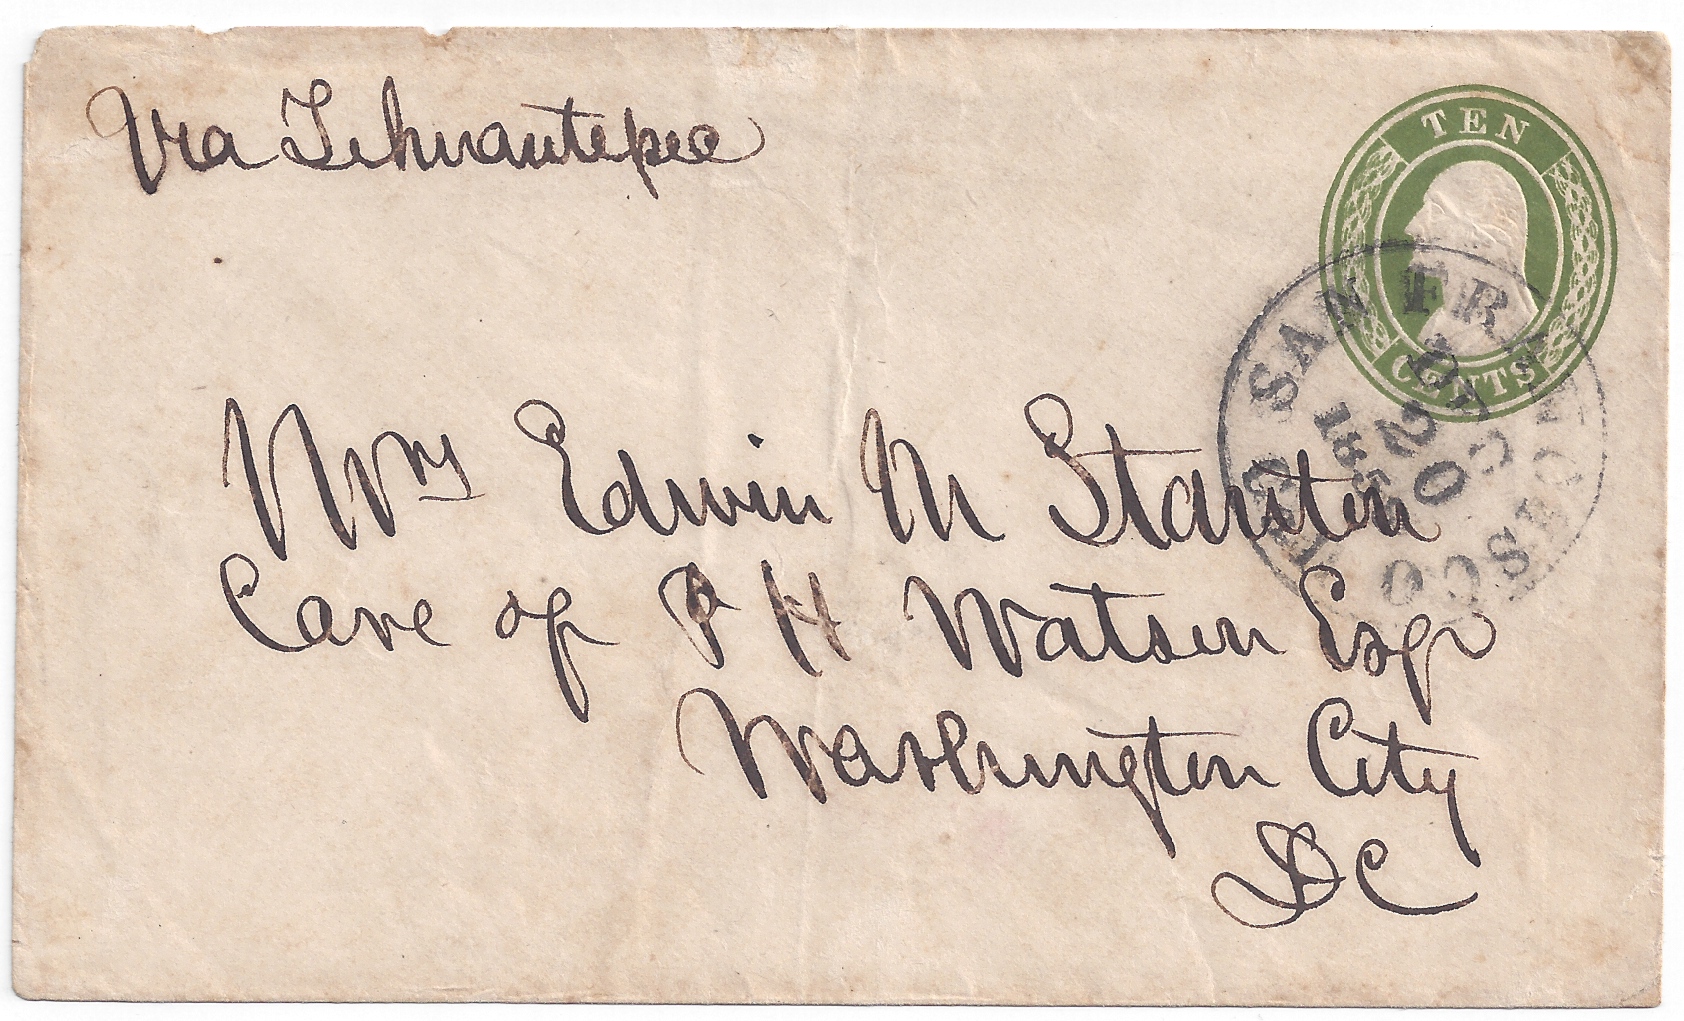 Via Tehuantepec
TEN
CENTS
SAN FRANCISCO CAL.
DEC
20
185
Mrs Edwin M Stanton
Care of P H Watson Esqr
Washington City
DC